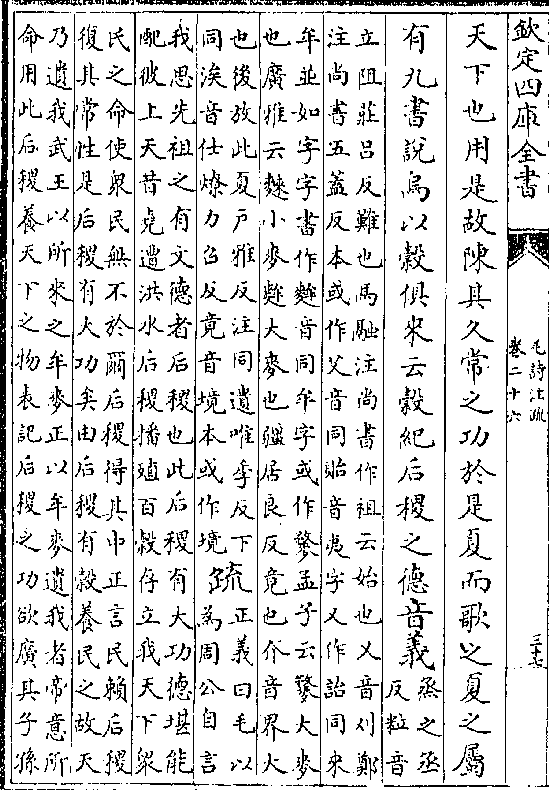 欽定四庫全書
毛詩注疏
卷二十六
三十七
天下也用是故陳其久常之功於是夏而歌之夏之屬
有九書說烏以穀俱來云穀紀后稷之德音義
烝之丞
反粒音
立阻莊呂反難也馬融注尚書作祖云始也乂音刈鄭
注尚書五蓋反本或作艾音同貽音夷字又作詒同來
牟並如字字書作麰音同牟字或作𪍓孟子云𪍓大麥
也廣雅云麳小麥麰大麥也疆居良反竟也介音界大
也後放此夏戶雅反注同遺唯季反下
同涘音仕燎力召反竟音境本或作境
疏
正義曰毛以
為周公自言
我思先祖之有文德者后稷也此后稷有大功德堪能
配彼上天昔堯遭洪水后稷播殖百穀存立我天下衆
民之命使衆民無不於爾后稷得其中正言民賴后稷
復其常性是后稷有大功矣由后稷有穀養民之故天
乃遺我武王以所來之牟麥正以牟麥遺我者帝意所
命用此后稷養天下之物表記后稷之功欲廣其子孫